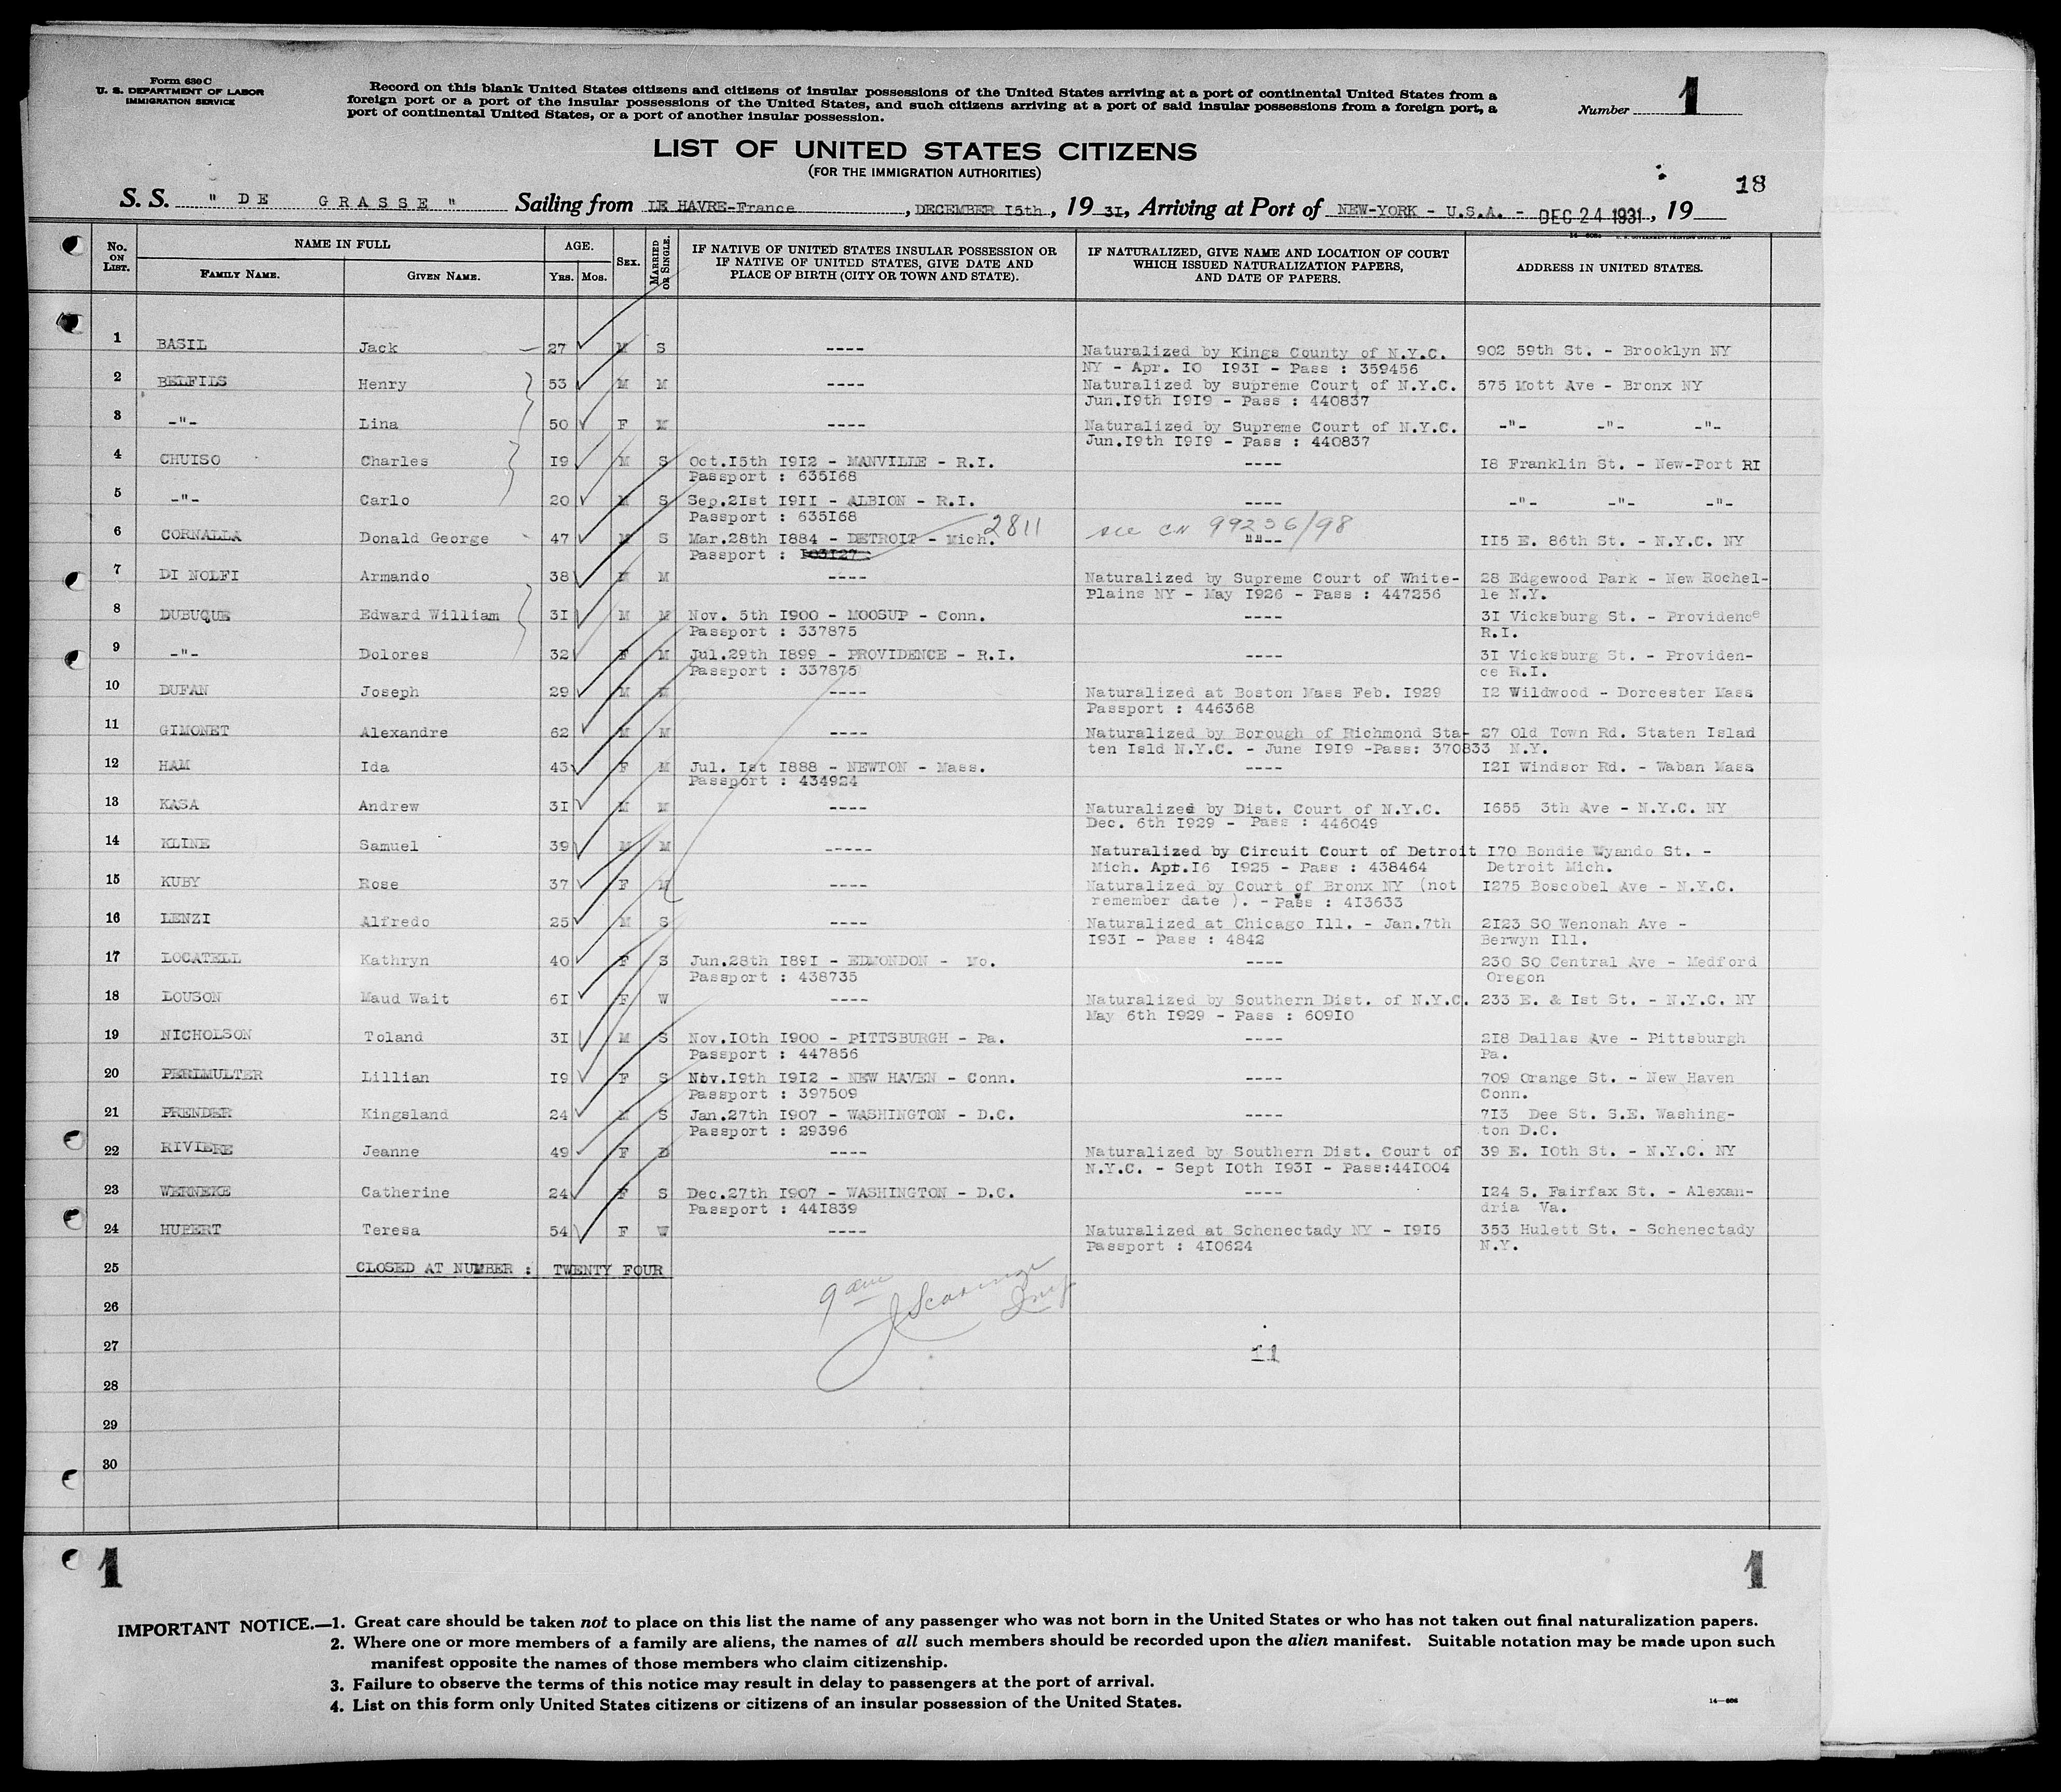 Form 630 C
U. S. DEPARTMENT OF LABOR
IMMIGRATION SERVICE
Record on this blank United States citizens and citizens of insular possessions of the United States arriving at a port of continental United States from a
foreign port or a port of the insular possessions of the United States, and such citizens arriving at a port of said insular possessions from a foreign port, a
port of continental United States, or a port of another insular possession.
Number 1
LIST OF UNITED STATES CITIZENS
(FOR THE IMMIGRATION AUTHORITIES)
18
S. S. " DE GRASSE " Sailing from LE HAVRE-France, DECEMBER I5th, 19 3I, Arriving at Port of NEW-YORK - U.S.A. - DEC 24 1931, 19
No. ON LIST.
NAME IN FULL
FAMILY NAME.
GIVEN NAME.
AGE.
YRS.
MOS.
SEX.
MARRIED OR SINGLE.
IF NATIVE OF UNITED STATES INSULAR POSSESSION OR
IF NATIVE OF UNITED STATES, GIVE DATE AND
PLACE OF BIRTH (CITY OR TOWN AND STATE).
IF NATURALIZED, GIVE NAME AND LOCATION OF COURT
WHICH ISSUED NATURALIZATION PAPERS,
AND DATE OF PAPERS.
ADDRESS IN UNITED STATES.
1 BASIL Jack 27 M S ---- Naturalized by Kings County of N.Y.C. 902 59th St. - Brooklyn NY
NY - Apr. I0 I93I - Pass : 359456
2 BELFILS Henry 53 M M ---- Naturalized by supreme Court of N.Y.C. 575 Mott Ave - Bronx NY
Jun.I9th I9I9 - Pass : 440837
3 -"- Lina 50 F M ---- Naturalized by Supreme Court of N.Y.C. -"- -"- -"-
Jun.I9th I9I9 - Pass : 440837
4 CHUISO Charles I9 M S Oct.I5th I9I2 - MANVILLE - R.I. ---- I8 Franklin St. - New-Port RI
Passport : 635I68
5 -"- Carlo 20 M S Sep.2Ist I9II - ALBION - R.I. ---- -"- -"- -"-
Passport : 635I68
2811 see CN 99236/98
6 CORNALLA Donald George 47 M S Mar.28th I884 - DETROIT - Mich. ""-- II5 E. 86th St. - N.Y.C. NY
Passport : I03I27 :
7 DI NOLFI Armando 38 M M ---- Naturalized by Supreme Court of White- 28 Edgewood Park - New Rochel-
Plains NY - May I926 - Pass : 447256 le N.Y.
8 DUBUQUE Edward William 3I M M Nov. 5th I900 - MOOSUP - Conn. ---- 3I Vicksburg St. - Providence
Passport : 337875 R.I.
9 -"- Dolores 32 F M Jul.29th I899 - PROVIDENCE - R.I. ---- 3I Vicksburg St. - Providen-
Passport : 337875 ce R.I.
10 DUFAN Joseph 29 M M ---- Naturalized at Boston Mass Feb. I929 I2 Wildwood - Dorcester Mass
Passport : 446368
11 GIMONET Alexandre 62 M M ---- Naturalized by Borough of Richmond Sta- 27 Old Town Rd. Staten Islad
ten Isld N.Y.C. - June I9I9 -Pass: 370833 N.Y.
12 HAM Ida 43 F M Jul. Ist I888 - NEWTON - Mass. ---- I2I Windsor Rd. - Waban Mass
Passport : 434924
13 KASA Andrew 3I M M ---- Naturalized by Dist. Court of N.Y.C. I655 3th Ave - N.Y.C. NY
Dec. 6th I929 - Pass : 446049
14 KLINE Samuel 39 M M ----- Naturalized by Circuit Court of Detroit I70 Bondie Wyando St. -
Mich. Apr.I6 I925 - Pass : 438464 Detroit Mich.
15 KUBY Rose 37 F M ---- Naturalized by Court of Bronx NY (not I275 Boscobel Ave - N.Y.C.
remember date ). - Pass : 4I3633
16 LENZI Alfredo 25 M S ---- Naturalized at Chicago Ill. - Jan.7th 2I23 SO Wenonah Ave -
I93I - Pass : 4842 Berwyn Ill.
17 LOCATELL Kathryn 40 F S Jun.28th I89I - EDMONDON - Mo. ---- 230 SO Central Ave - Medford
Passport : 438735 Oregon
18 LOUSON Maud Wait 6I F W ---- Naturalized by Southern Dist. of N.Y.C. 233 E. & Ist St. - N.Y.C. NY
May 6th I929 - Pass : 609I0
19 NICHOLSON Toland 3I M S Nov.I0th I900 - PITTSBURGH - Pa. ---- 2I8 Dallas Ave - Pittsburgh
Passport : 447856 Pa.
20 PERIMULTER Lillian I9 F S Nov.I9th I9I2 - NEW HAVEN - Conn. ---- 709 Orange St. - New Haven
Passport : 397509 Conn.
21 PRENDER Kingsland 24 M S Jan.27th I907 - WASHINGTON - D.C. 7I3 Dee St. S.E. Washing-
Passport : 29396 ton D.C.
22 RIVIERE Jeanne 49 F D ---- Naturalized by Southern Dist. Court of 39 E. I0th St. - N.Y.C. NY
N.Y.C. - Sept I0th I93I - Pass:44I004
23 WERNEKE Catherine 24 F S Dec.27th I907 - WASHINGTON - D.C. ---- I24 S. Fairfax St. - Alexan-
Passport : 44I839 dria Va.
24 HUPERT Teresa 54 F W ---- Naturalized at Schenectady NY - I9I5 353 Hulett St. - Schenectady
Passport : 4I0624 N.Y.
25 CLOSED AT NUMBER : TWENTY FOUR
9 am
26
27 11
28
29
30
1 1
IMPORTANT NOTICE.—1. Great care should be taken not to place on this list the name of any passenger who was not born in the United States or who has not taken out final naturalization papers.
2. Where one or more members of a family are aliens, the names of all such members should be recorded upon the alien manifest. Suitable notation may be made upon such
manifest opposite the names of those members who claim citizenship.
3. Failure to observe the terms of this notice may result in delay to passengers at the port of arrival.
4. List on this form only United States citizens or citizens of an insular possession of the United States.